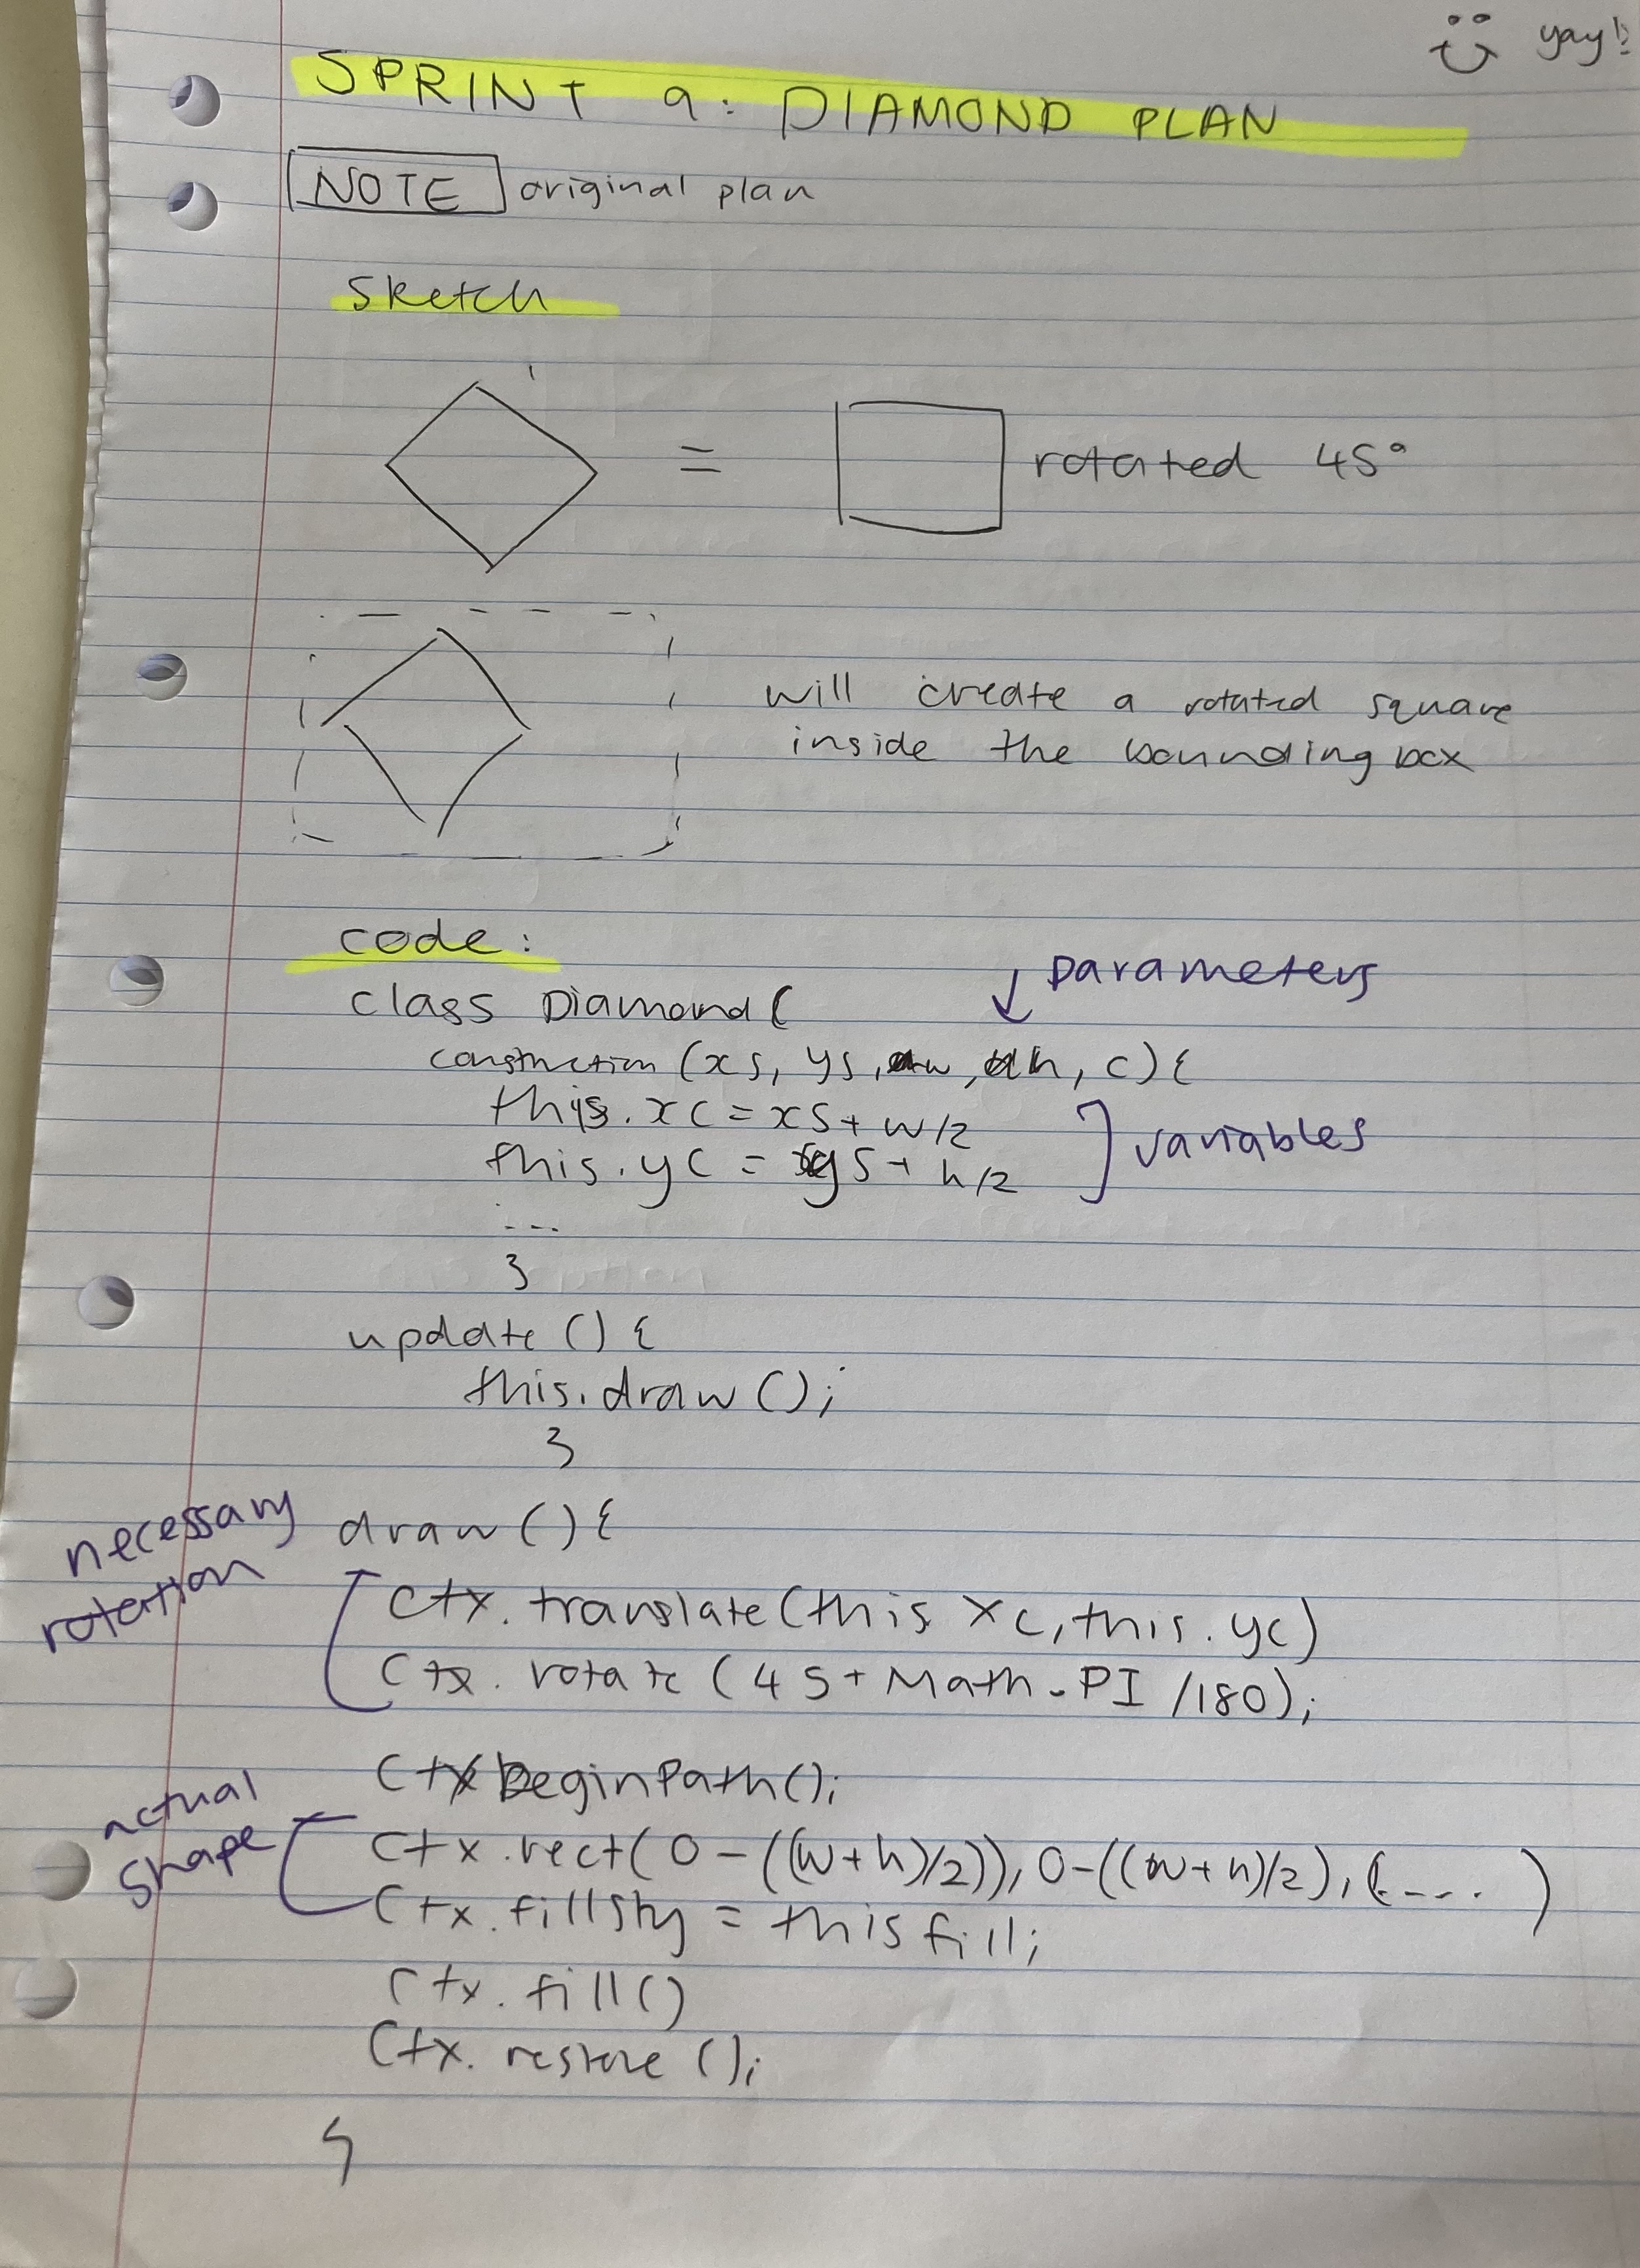 yay!
SPRINT 9: DIAMOND PLAN
NOTE original plan
Sketch
= rotated 45°
will create a rotated square
inside the bounding box
code:
parameters
class Diamond {
construction (xs, ys, w, h, c) {
this.xc = xs + w/2
this.yc = ys + h/2
variables
...
}
update () {
this.draw ();
}
necessary
rotation
draw () {
ctx. translate (this xc, this. yc)
ctx. rotate (45 + Math.PI /180);
ctx beginPath ();
actual
shape
ctx .rect( 0 - ((w+h)/2)), 0-((w+h)/2), (.... )
ctx. fillSty = this fill;
ctx. fill ()
ctx. restore ();
}